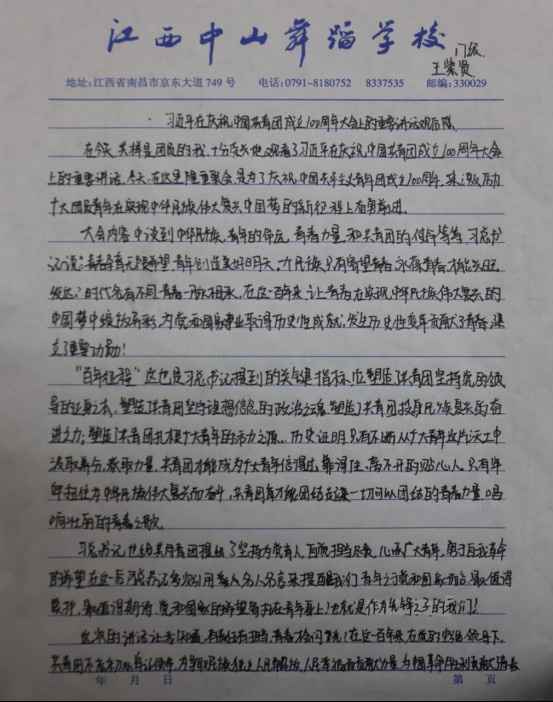 江西中山舞蹈学校
门级
王紫贤
地址:江西省南昌市京东大道749号 电话:0791-8180752 8337535 邮编:330029
习近平在庆祝中国共青团成立100周年大会上的重要讲话观后感
在今天,共样是团员的我,十分荣幸地观看了习近平在庆祝中国共青团成立100周年大会
上的重要讲话。今天,在这里隆重聚会,是为了庆祝中国共产主义青年团成立100周年,来激励
广大团员青年在实现中华民族伟大复兴中国梦的新征程上奋勇前进。
大会内容中谈到中华民族、青年的命运,青春力量,和共青团的使命等等,习总书
记说:青春孕育无限希望,青年创造美好明天。一个民族只有寄望青春,永葆青春,才能兴旺
发达。时代各有不同,青春一脉相承,在这一百年来,让青春在实现中华民族伟大复兴的
中国梦中绽放异彩,为党和国家事业取得历史性成就,发生历史性变革贡献了青春,建
立了重要功勋!
"百年征程"这也是习总书记提到的关键指标,塑造了共青团坚持党的领
导的立身之本,塑造了共青团坚守理想信念的政治之魂,塑造了共青团投身民族复兴的奋
进之力;塑造了共青团扎根广大青年的活力之源。历史证明,只有不断从广大青年这片沃土中
汲取养分、获取力量,共青团才能成为广大青年信得过、靠得住、离不开的贴心人。只有牢
牢扭住为中华民族伟大复兴而奋斗,共青团才能团结起一切可以团结的青春力量,唱
响壮丽的青春之歌。
习总书记也给共青团提出了坚持为党育人,自觉担当尽责,心系广大青年,勇于自我革命
的希望。在这一后习总书记多次引用名人名言来提醒我们青年之于党和国家而言,最值得
爱护、最值得期待。党和国家的希望寄托在青年身上!也就是作为先锋之子的我们!
此次的讲话让我知道,有责任有担当,青春才会闪光!在这一百年来,在党的坚强领导下,
共青团不忘初心,牢记使命,为争取民族独立、人民解放、人民幸福而贡献力量,为中国革命胜利
年 月 日 第 页